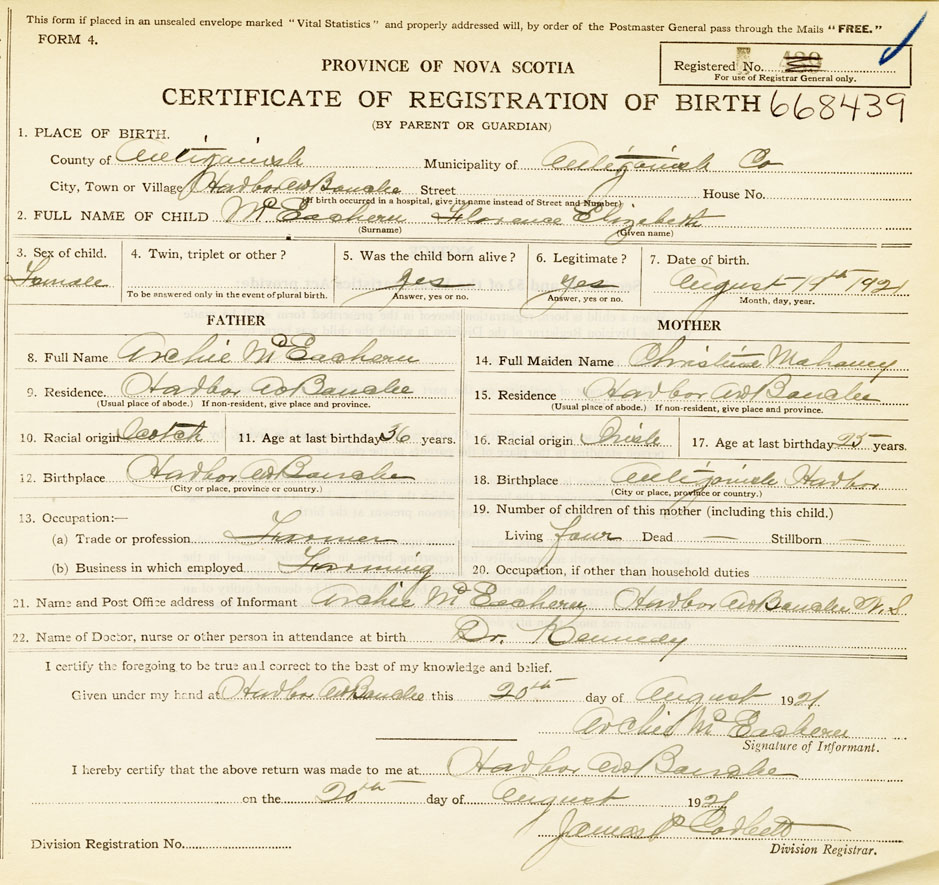 This form if placed in an unsealed envelope marked "Vital Statistics" and properly addressed will, by order of the Postmaster General pass through the Mails "FREE."
FORM 4.
Registered No.
For use of Registrar General only.
PROVINCE OF NOVA SCOTIA
CERTIFICATE OF REGISTRATION OF BIRTH 668439
(BY PARENT OR GUARDIAN)
1. PLACE OF BIRTH.
County of Antigonish Municipality of Antigonish Co
City, Town or Village Harbor Au Bouche Street House No.
(If birth occurred in a hospital, give its name instead of Street and Number)
2. FULL NAME OF CHILD McEachern Florence Elizabeth
(Surname) (Given name)
3. Sex of child. 4. Twin, triplet or other? 5. Was the child born alive? 6. Legitimate? 7. Date of birth.
Female yes yes August 19th 1921
To be answered only in the event of plural birth. Answer, yes or no. Answer, yes or no. Month, day, year.
FATHER MOTHER
8. Full Name Archie McEachern 14. Full Maiden Name Christine Mahaney
9. Residence. Harbor Au Bouche 15. Residence Harbor Au Bouche
(Usual place of abode.) If non-resident, give place and province. (Usual place of abode.) If non-resident, give place and province.
10. Racial origin Scotch 11. Age at last birthday 36 years. 16. Racial origin Irish 17. Age at last birthday 25 years.
12. Birthplace Harbor Au Bouche 18. Birthplace Antigonish Harbor
(City or place, province or country.) (City or place, province or country.)
13. Occupation:— 19. Number of children of this mother (including this child.)
(a) Trade or profession Farmer Living four Dead — Stillborn —
(b) Business in which employed Farming 20. Occupation, if other than household duties
21. Name and Post Office address of Informant Archie McEachern Harbor Au Bouche N.S
22. Name of Doctor, nurse or other person in attendance at birth Dr. Kennedy
I certify the foregoing to be true and correct to the best of my knowledge and belief.
Given under my hand at Harbor Au Bouche this 20th day of August 1921
Archie McEachern
Signature of Informant.
I hereby certify that the above return was made to me at Harbor Au Bouche
on the 20th day of August 1921
James P Corbett
Division Registration No. Division Registrar.